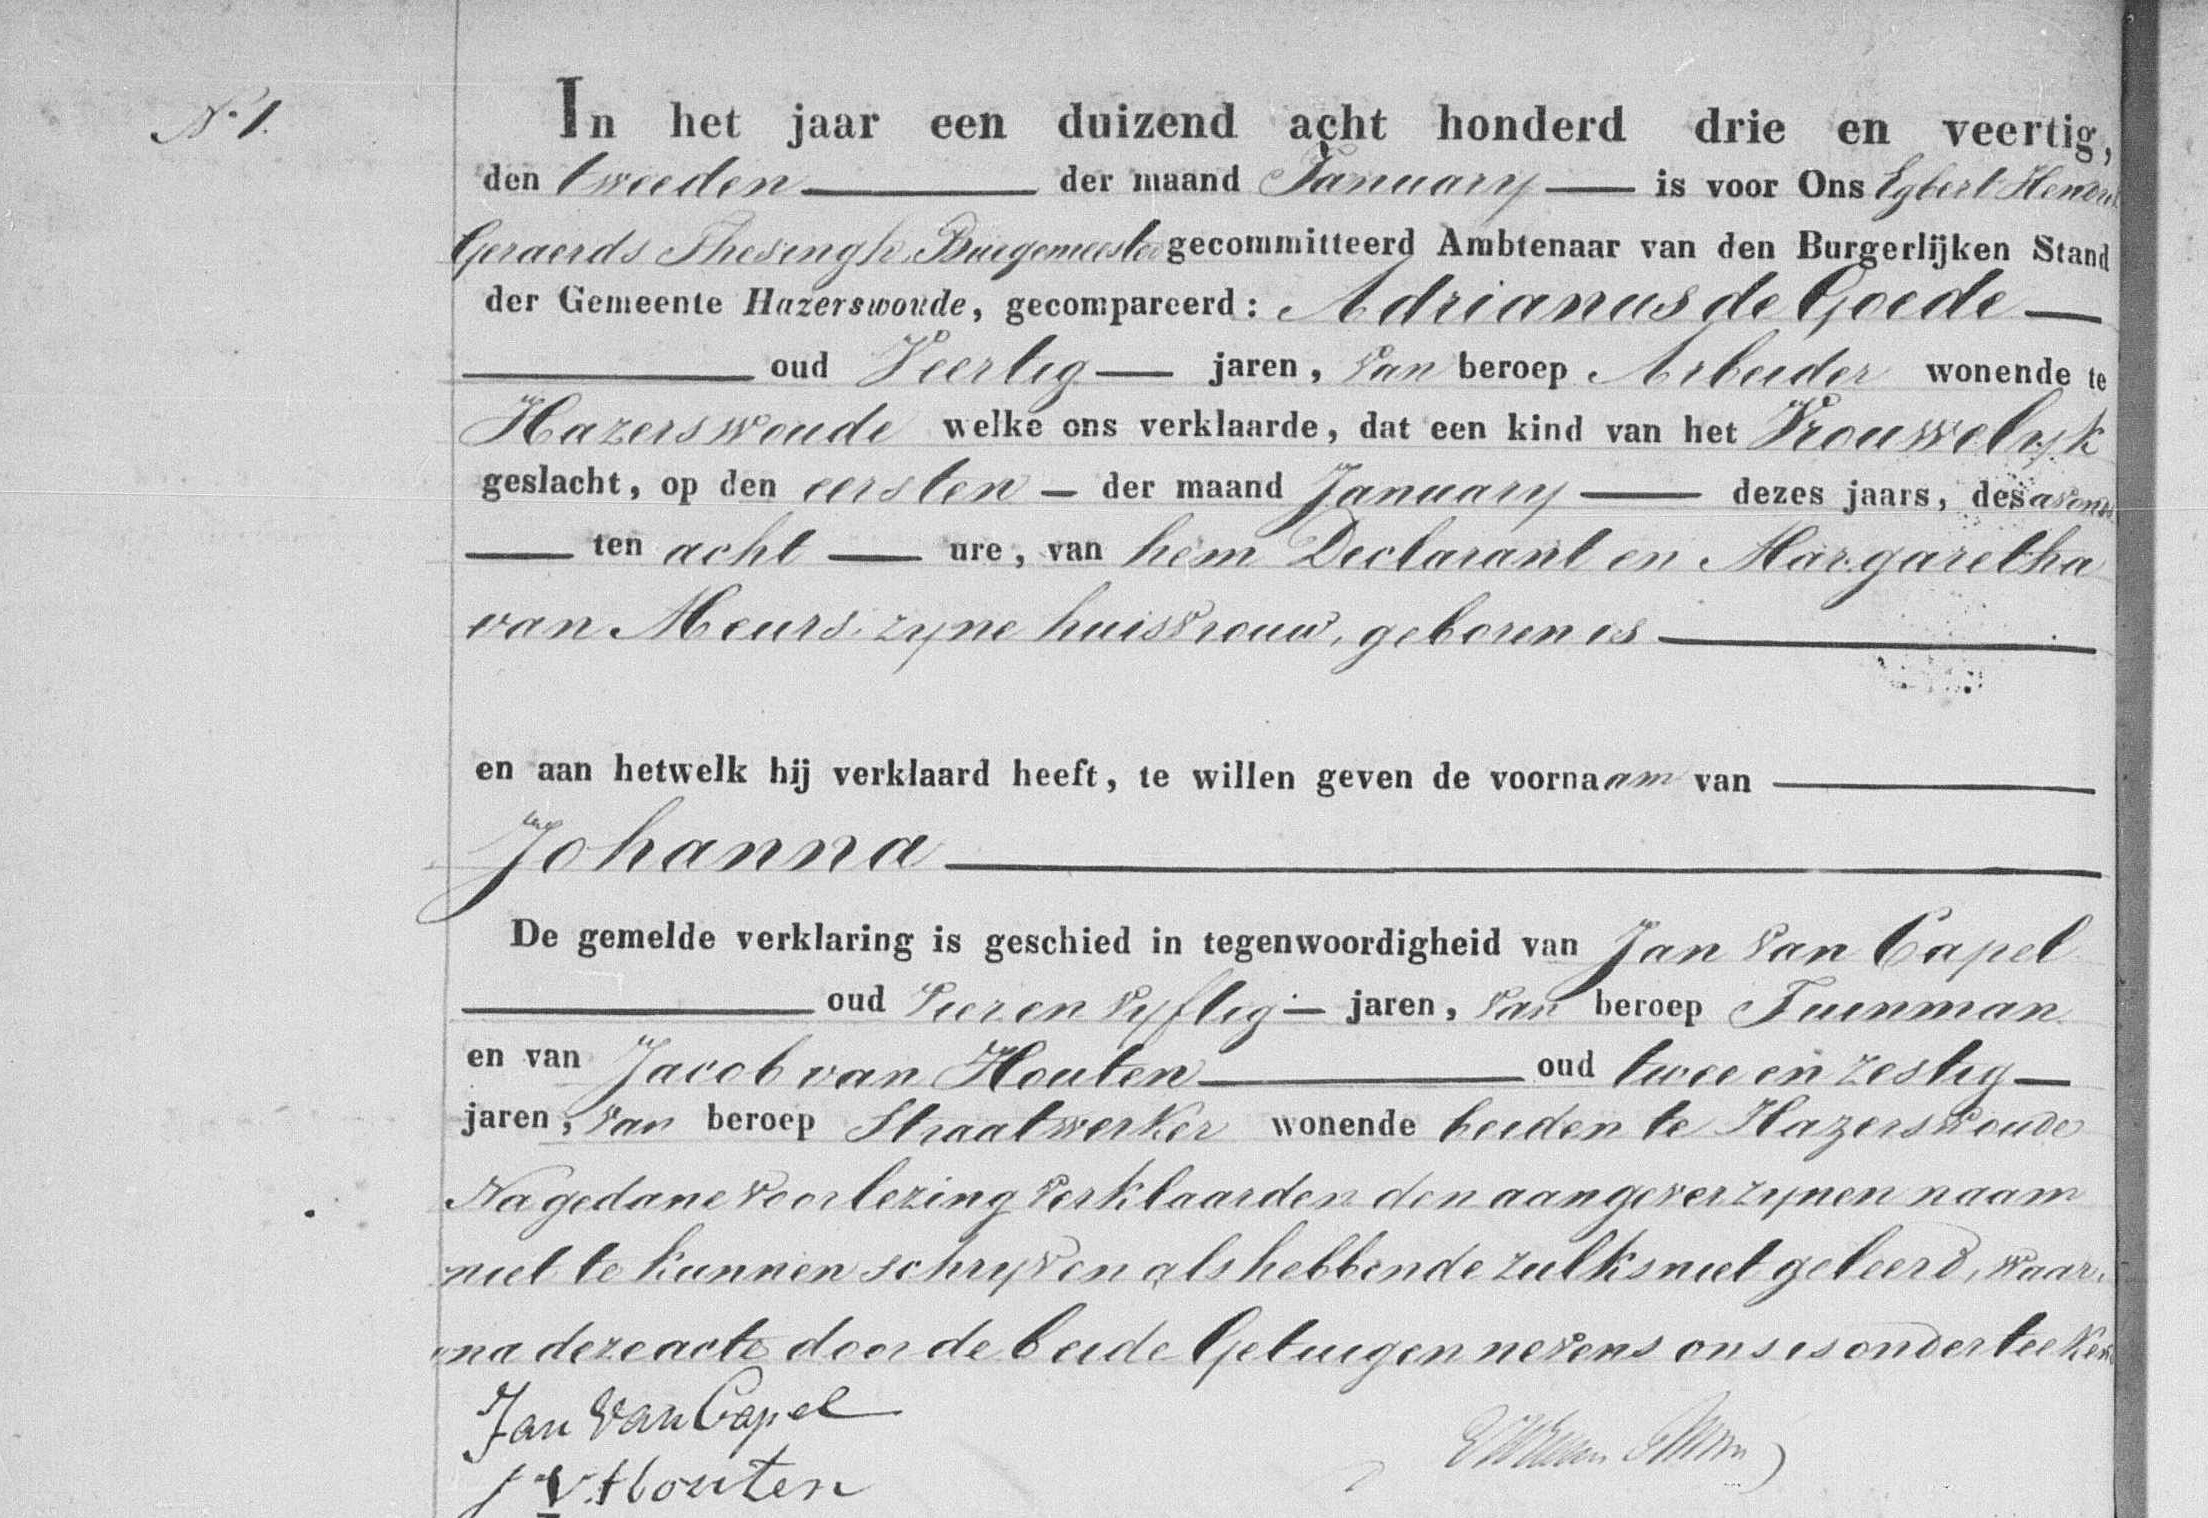 N.o 1.
In het jaar een duizend acht honderd drie en veertig,
den tweeden der maand January is voor Ons Egbert Hendrik
Geraerds Thesingh, Burgemeester gecommitteerd Ambtenaar van den Burgerlijken Stand
der Gemeente Hazerswoude, gecompareerd: Adrianus de Goede
oud Veertig jaren, van beroep Arbeider wonende te
Hazerswoude welke ons verklaarde, dat een kind van het Vrouwelyk
geslacht, op den eersten der maand January dezes jaars, des avonds
ten acht ure, van hem Declarant en Margaretha
van Meurs zyne huisvrouw, geboren is
en aan hetwelk hij verklaard heeft, te willen geven de voornaam van
Johanna
De gemelde verklaring is geschied in tegenwoordigheid van Jan van Capel
oud vier en vyftig jaren, van beroep Tuinman
en van Jacob van Houten oud twee en zestig
jaren, van beroep Straatwerker wonende beiden te Hazerswoude
Na gedane voorlezing verklaarden den aangever zynen naam
niet te kunnen schryven als hebbende zulks niet geleerd, waar,
na deze acte door de beide Getuigen nevens ons is onderteekend
Jan Van Capel
J V. Houten